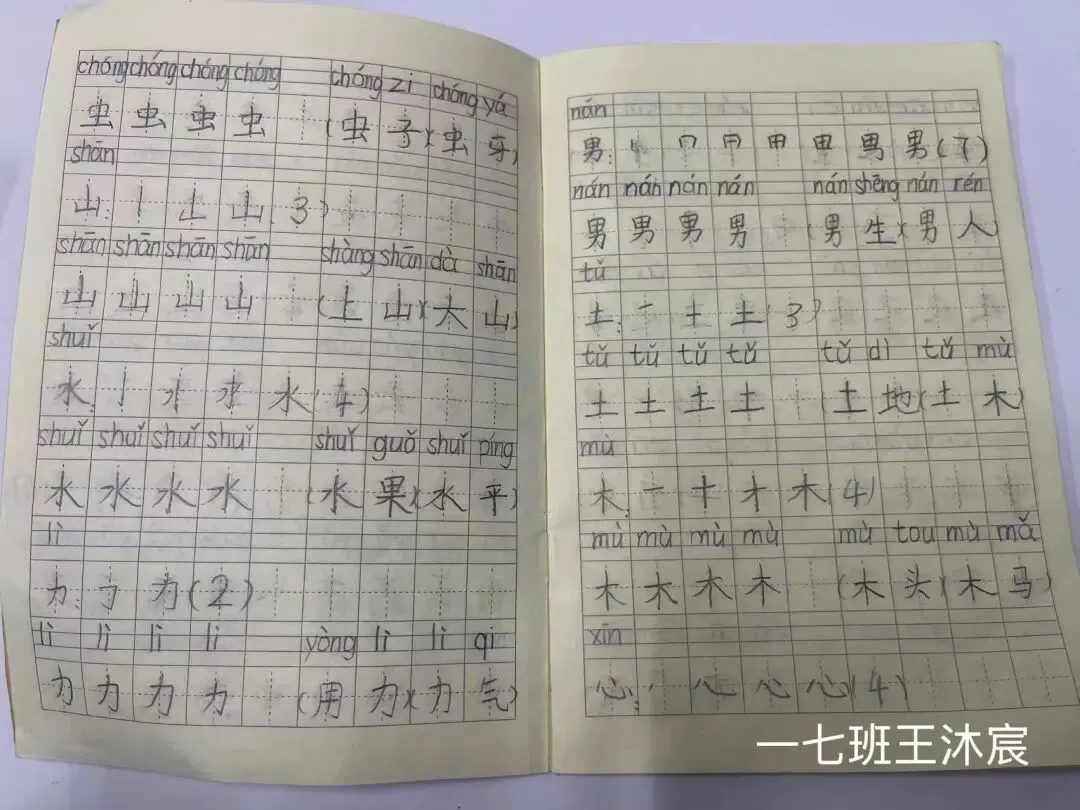 chóng chóng chóng chóng chóng zi chóng yá
虫 虫 虫 虫 (虫 子)(虫 牙)
shān
山: 丨 山 山 (3)
shān shān shān shān shàng shān dà shān
山 山 山 山 (上 山)(大 山)
shuǐ
水: 亅 水 (4)
shuǐ shuǐ shuǐ shuǐ shuǐ guǒ shuǐ píng
水 水 水 水 (水 果)(水 平)
lì
力: 力 (2)
lì lì lì lì yòng lì lì qi
力 力 力 力 (用 力)(力 气)
nán
男: 丨 冂 甲 田 男 男 (7)
nán nán nán nán nán shēng nán rén
男 男 男 男 (男 生)(男 人)
tǔ
土: 一 土 土 (3)
tǔ tǔ tǔ tǔ tǔ dì tǔ mù
土 土 土 土 (土 地)(土 木)
mù
木: 一 十 才 木 (4)
mù mù mù mù mù tou mù mǎ
木 木 木 木 (木 头)(木 马)
xīn
心: 丶 心 心 心 (4)
一七班王沐宸